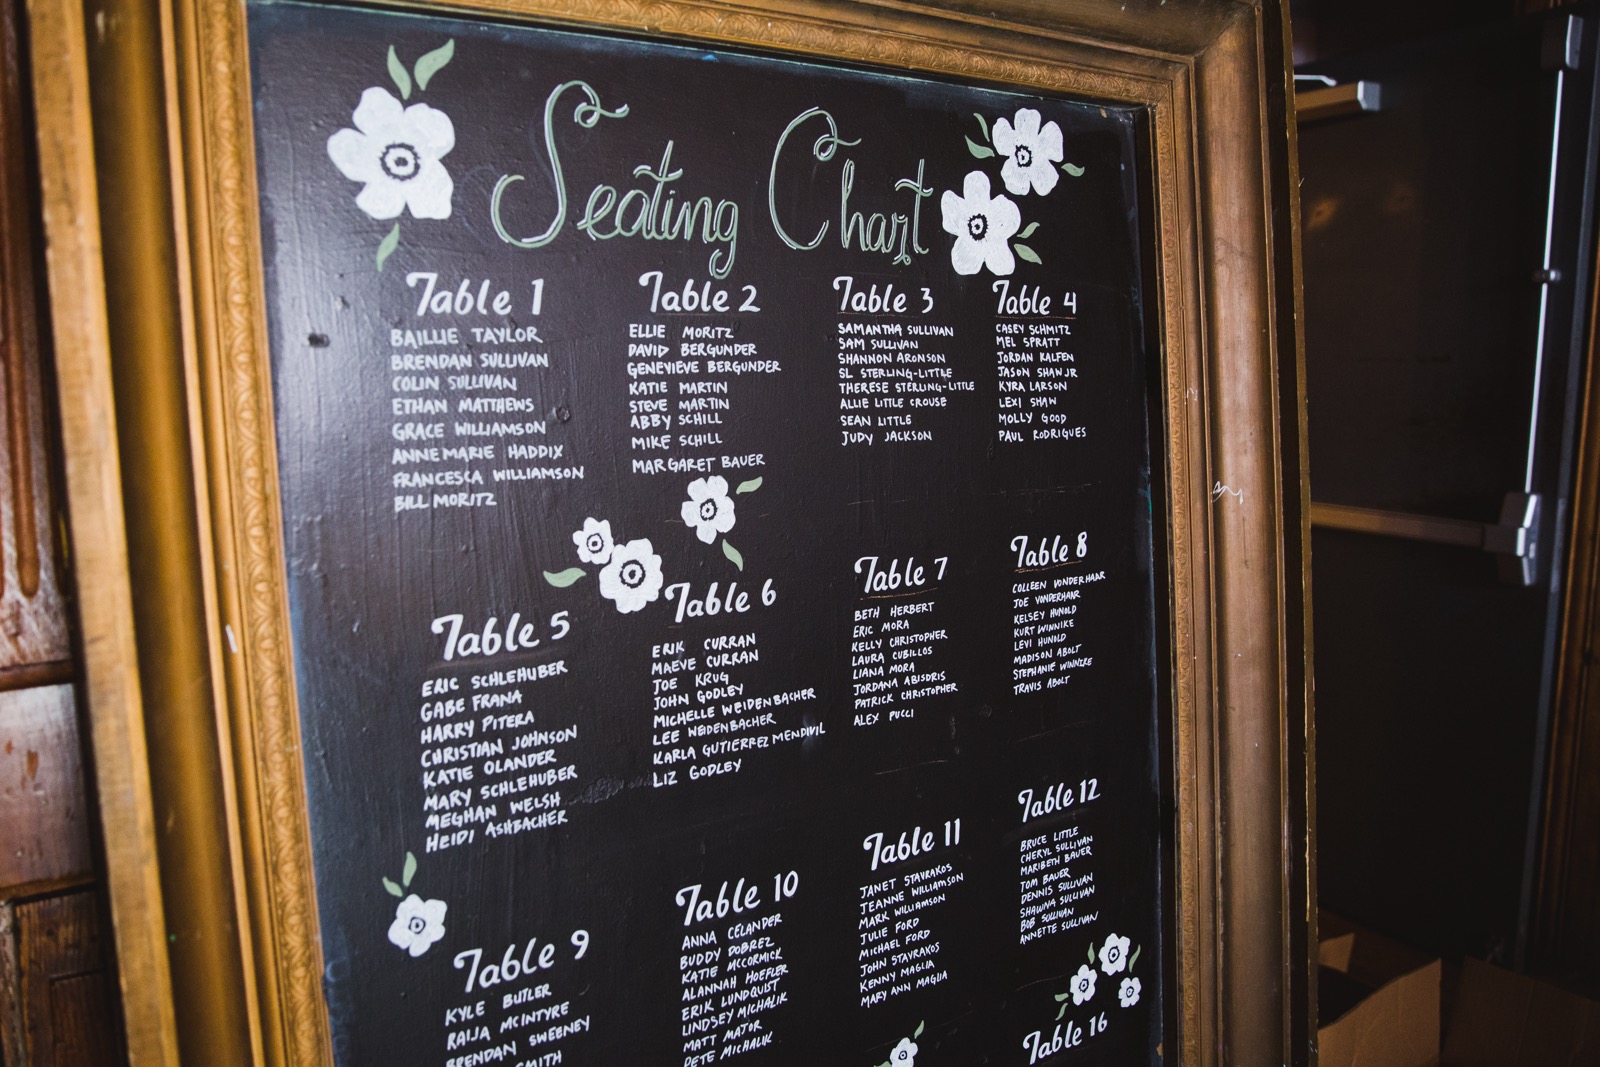 Seating Chart
Table 1
BAILLIE TAYLOR
BRENDAN SULLIVAN
COLIN SULLIVAN
ETHAN MATTHEWS
GRACE WILLIAMSON
ANNE MARIE HADDIX
FRANCESCA WILLIAMSON
BILL MORITZ
Table 2
ELLIE MORITZ
DAVID BERGUNDER
GENEVIEVE BERGUNDER
KATIE MARTIN
STEVE MARTIN
ABBY SCHILL
MIKE SCHILL
MARGARET BAUER
Table 3
SAMANTHA SULLIVAN
SAM SULLIVAN
SHANNON ARONSON
SL STERLING-LITTLE
THERESE STERLING-LITTLE
ALLIE LITTLE CROUSE
SEAN LITTLE
JUDY JACKSON
Table 4
CASEY SCHMITZ
MEL SPRATT
JORDAN KALFEN
JASON SHAW JR
KYRA LARSON
LEXI SHAW
MOLLY GOOD
PAUL RODRIGUES
Table 5
ERIC SCHLEHUBER
GABE FRANA
HARRY PITERA
CHRISTIAN JOHNSON
KATIE OLANDER
MARY SCHLEHUBER
MEGHAN WELSH
HEIDI ASHBACHER
Table 6
ERIK CURRAN
MAEVE CURRAN
JOE KRUG
JOHN GODLEY
MICHELLE WEIDENBACHER
LEE WEIDENBACHER
KARLA GUTIERREZ MENDIVIL
LIZ GODLEY
Table 7
BETH HERBERT
ERIC MORA
KELLY CHRISTOPHER
LAURA CUBILLOS
LIANA MORA
JORDANA ABISDRIS
PATRICK CHRISTOPHER
ALEX PUCCI
Table 8
COLLEEN VONDERHAAR
JOE VONDERHAAR
KELSEY HUNOLD
KURT WINNIKE
LEVI HUNOLD
MADISON ABOLT
STEPHANIE WINNIKE
TRAVIS ABOLT
Table 9
KYLE BUTLER
RAIJA MCINTYRE
BRENDAN SWEENEY
SMITH
Table 10
ANNA CELANDER
BUDDY DOBREZ
KATIE MCCORMICK
ALANNAH HOEFLER
ERIK LUNDQUIST
LINDSEY MICHALIK
MATT MAJOR
PETE MICHALIK
Table 11
JANET STAVRAKOS
JEANNE WILLIAMSON
MARK WILLIAMSON
JULIE FORD
MICHAEL FORD
JOHN STAVRAKOS
KENNY MAGLIA
MARY ANN MAGLIA
Table 12
BRUCE LITTLE
CHERYL SULLIVAN
MARIBETH BAUER
TOM BAUER
DENNIS SULLIVAN
SHAWNA SULLIVAN
BOB SULLIVAN
ANNETTE SULLIVAN
Table 16